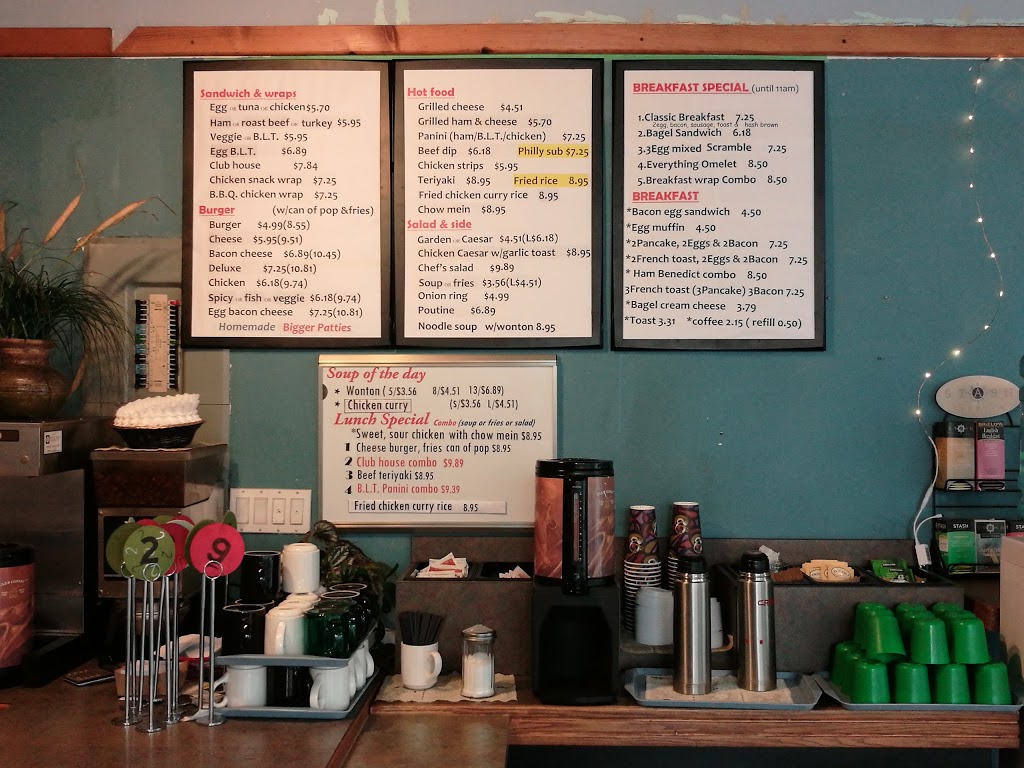 Sandwich & wraps
Egg or tuna or chicken $5.70
Ham or roast beef or turkey $5.95
Veggie or B.L.T. $5.95
Egg B.L.T. $6.89
Club house $7.84
Chicken snack wrap $7.25
B.B.Q. chicken wrap $7.25
Burger (w/can of pop &fries)
Burger $4.99(8.55)
Cheese $5.95(9.51)
Bacon cheese $6.89(10.45)
Deluxe $7.25(10.81)
Chicken $6.18(9.74)
Spicy or fish or veggie $6.18(9.74)
Egg bacon cheese $7.25(10.81)
Homemade Bigger Patties
Hot food
Grilled cheese $4.51
Grilled ham & cheese $5.70
Panini (ham/B.L.T./chicken) $7.25
Beef dip $6.18 Philly sub $7.25
Chicken strips $5.95
Teriyaki $8.95 Fried rice 8.95
Fried chicken curry rice 8.95
Chow mein $8.95
Salad & side
Garden or Caesar $4.51(L$6.18)
Chicken Caesar w/garlic toast $8.95
Chef's salad $9.89
Soup or fries $3.56(L$4.51)
Onion ring $4.99
Poutine $6.89
Noodle soup w/wonton 8.95
BREAKFAST SPECIAL (until 11am)
1.Classic Breakfast 7.25
2egg, bacon, sausage, toast & hash brown
2.Bagel Sandwich 6.18
3.3Egg mixed Scramble 7.25
4.Everything Omelet 8.50
5.Breakfast wrap Combo 8.50
BREAKFAST
*Bacon egg sandwich 4.50
*Egg muffin 4.50
*2Pancake, 2Eggs & 2Bacon 7.25
*2French toast, 2Eggs & 2Bacon 7.25
* Ham Benedict combo 8.50
3French toast (3Pancake) 3Bacon 7.25
*Bagel cream cheese 3.79
*Toast 3.31 *coffee 2.15 ( refill 0.50)
Soup of the day
* Wonton ( S/$3.56 8/$4.51 13/$6.89)
* Chicken curry (S/$3.56 L/$4.51)
Lunch Special Combo (soup or fries or salad)
*Sweet, sour chicken with chow mein $8.95
1 Cheese burger, fries can of pop $8.95
2 Club house combo $9.89
3 Beef teriyaki $8.95
4 B.L.T. Panini combo $9.39
Fried chicken curry rice 8.95
2
9
STASH
English Breakfast
STASH
STASH